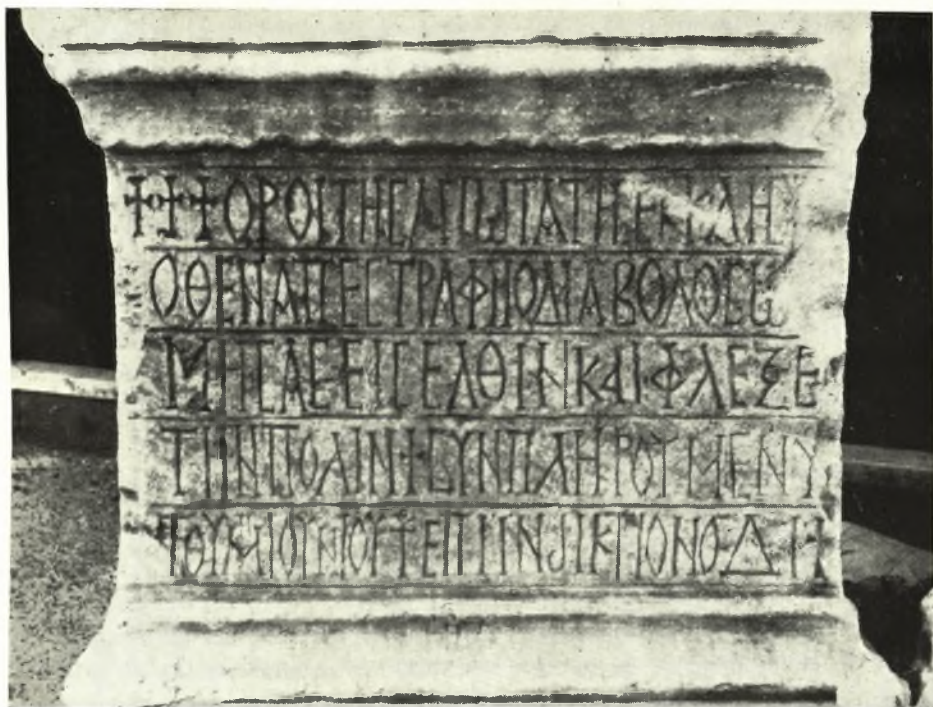 ††† ΟΡΟΙ ΤΗC ΑΓΙΩΤΑΤΗ ΕΚΚΛΗ
ΟΘΕΝ ΑΠΕCΤΡΑΦΗ Ο ΔΙΑΒΟΛΟC
ΕΙCΕΛΘΗΝ ΚΑΙ ΦΛΕΞΕ
ΤΗΝ ΠΟΛΙΝ † CΥΝΠΛΗΡΟΥΜΕΝΥ
ΤΟΥ Μ ΙΟΥΝΙΟΥ † ΕΠΙ ΙΝΔΙΚΤΙΟΝΟC